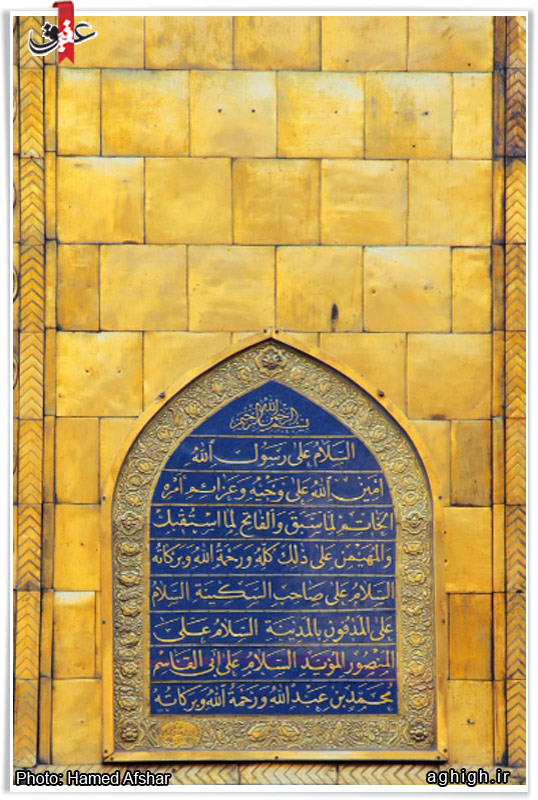 عقیق
بسم الله الرحمن الرحیم
السلام علی رسول الله
امین الله علی وحیه وعزائم امره
الخاتم لما سبق والفاتح لما استقبل
والمهیمن علی ذلك كله ورحمة الله وبركاته
السلام علی صاحب السكینة السلام
علی المدفون بالمدینة السلام علی
المنصور المؤید السلام علی ابی القاسم
محمد بن عبد الله ورحمة الله وبركاته
Photo: Hamed Afshar
aghigh.ir